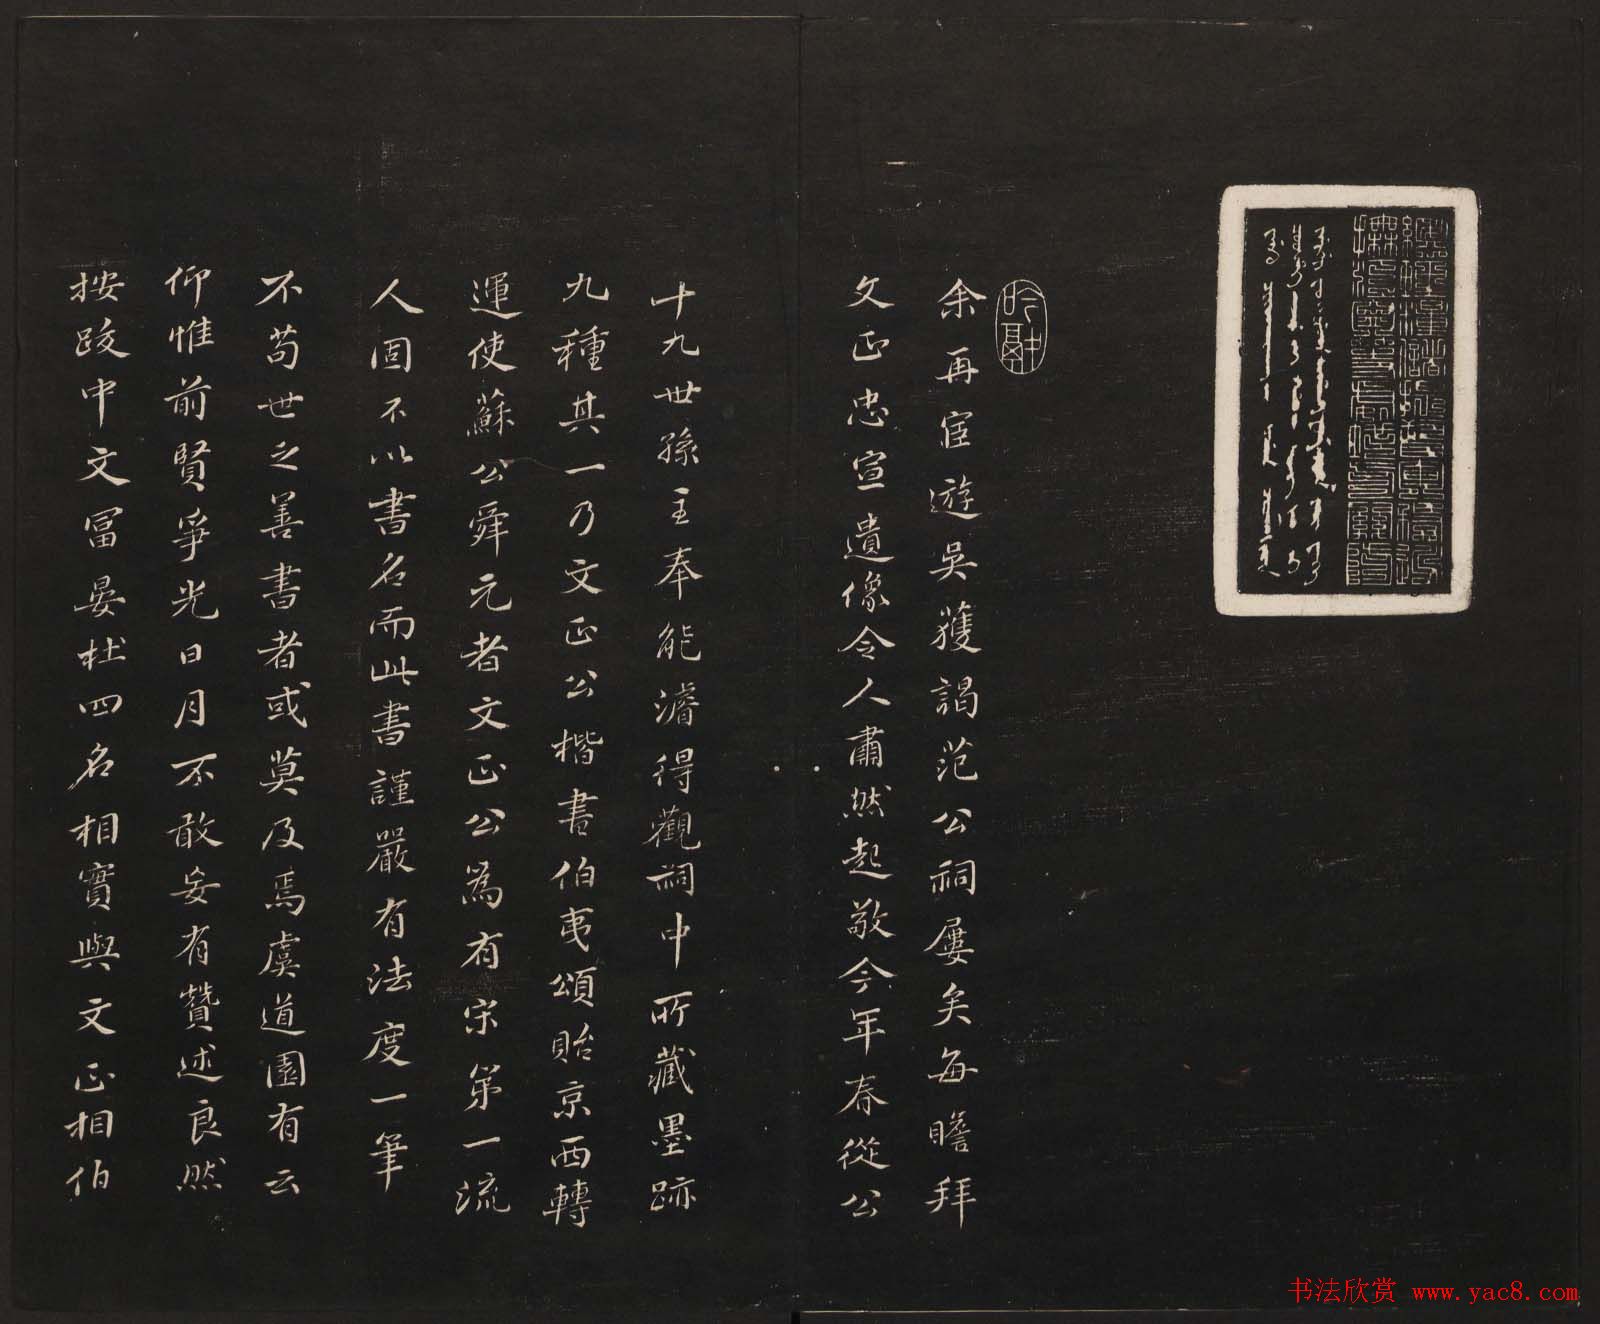 余再宦遊吳獲謁范公祠屢矣每瞻拜
文正忠宣遺像令人肅然起敬今年春從公
十九世孫主奉能濬得觀祠中所藏墨跡
九種其一乃文正公楷書伯夷頌貽京西轉
運使蘇公舜元者文正公為有宋第一流
人固不以書名而此書謹嚴有法度一筆
不苟世之善書者或莫及焉虞道園有云
仰惟前賢爭光日月不敢妄有贊述良然
按跋中文富晏杜四名相實與文正相伯
书法欣赏 www.yac8.com